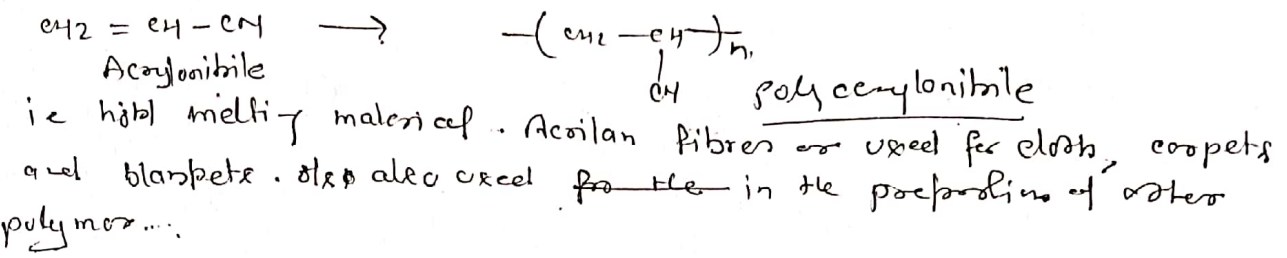 CH2 = CH - CN → -( CH2 - CH )-n
Acrylonitrile
CN polyacrylonitrile
is high melting material. Acrilan fibres are used for cloth, carpets
and blankets. also used in the preparation of other
polymer....